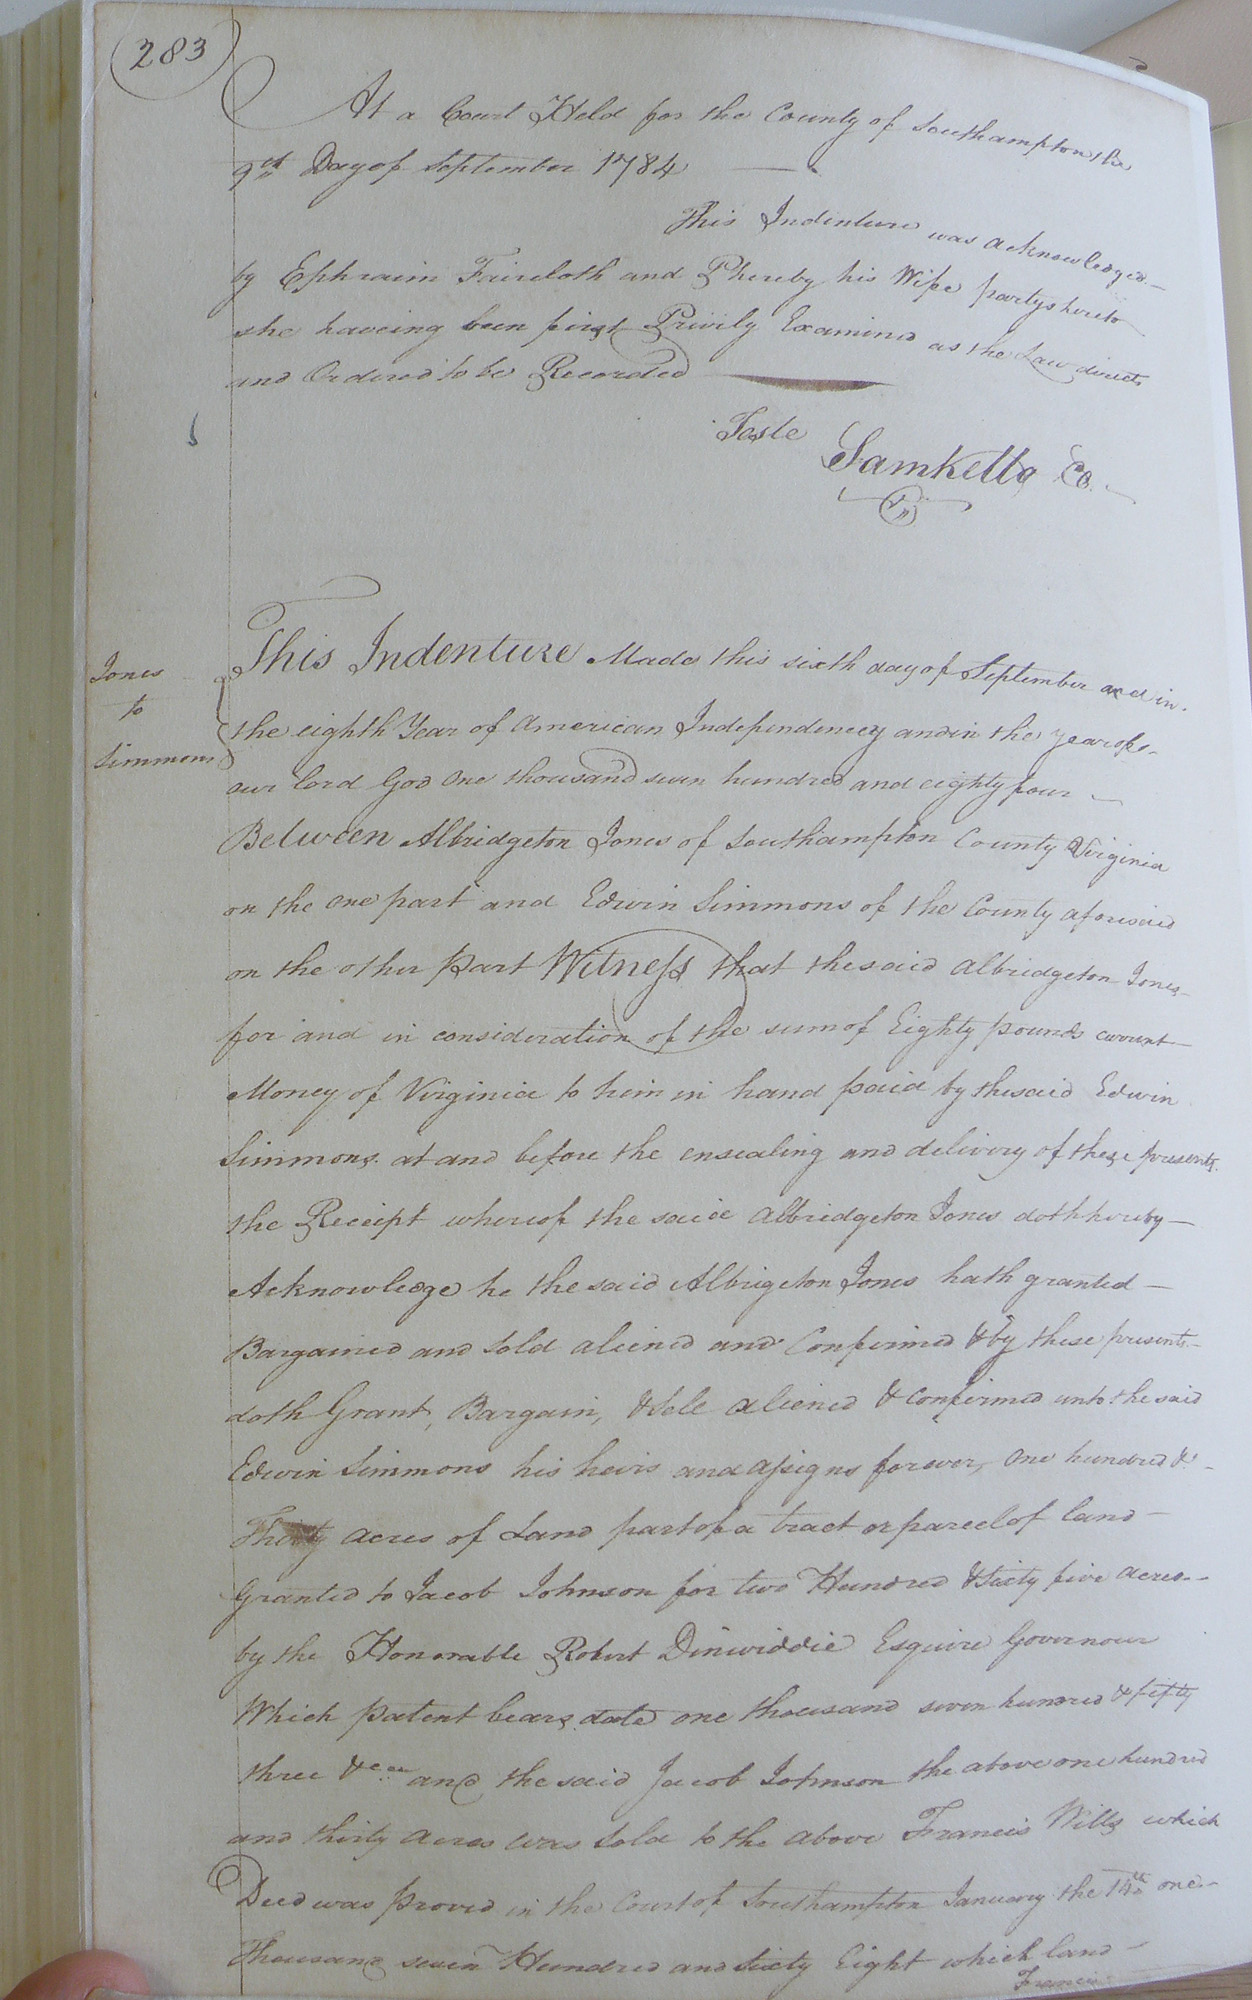 283
At a Court Held for the County of Southampton the
9th Day of September 1784
This Indenture was acknowledged
by Ephraim Faircloth and Phereby his Wife partys hereto
she haveing been first Privily Examined as the Law directs
and Ordered to be Recorded
Teste
Sam Kello Cc.
Jones
to
Simmons
This Indenture Made this sixth day of September and in
the eighth Year of American Independency and in the year of
our Lord God One thousand seven hundred and eighty four
Between Albridgeton Jones of Southampton County Virginia
on the one part and Edwin Simmons of the County aforesaid
on the other Part Witness that the said Albridgeton Jones
for and in consideration of the sum of Eighty pounds current
Money of Virginia to him in hand paid by the said Edwin
Simmons at and before the ensealing and delivery of these presents
the Receipt whereof the said Albridgeton Jones doth hereby
Acknowledge he the said Albrigeton Jones hath granted
Bargained and Sold aliened and Confirmed & by these presents
doth Grant, Bargain, & Sell aliened & confirmed unto the said
Edwin Simmons his heirs and assigns forever, One hundred &
Thirty acres of Land part of a tract or parcel of land
Granted to Jacob Johnson for two Hundred & Sixty five acres
by the Honorable Robert Dinwiddie Esquire Governour
Which patent bears date one thousand seven hundred & fifty
three &ca and the said Jacob Johnson the above one hundred
and thirty acres was sold to the above Francis Wills which
Deed was proved in the Court of Southampton January the 14th one
Thousand seven Hundred and sixty Eight which land
Francis